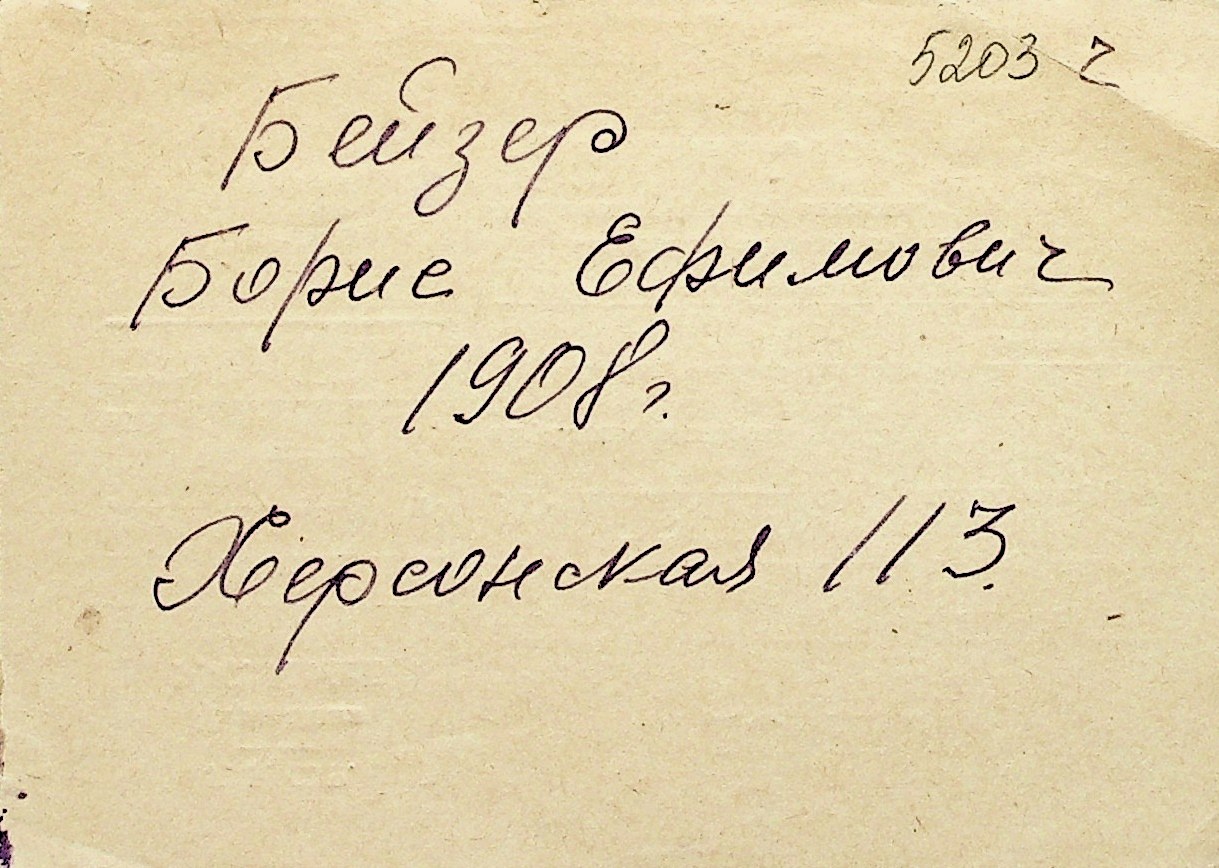 5203 ч
Бейзер
Борис Ефимович
1908 г.
Херсонская 113.